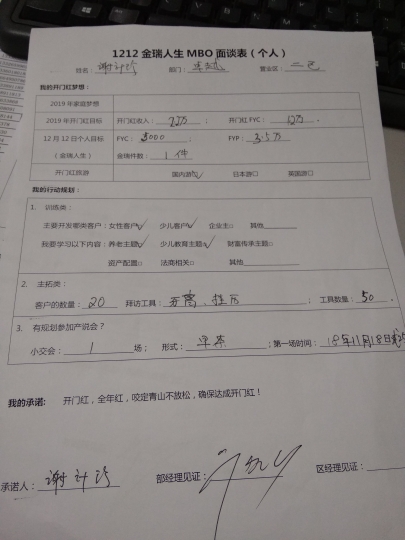 1212 金瑞人生 MBO 面谈表（个人）
姓名： 部门： 营业区： 二区
我的开门红梦想：
2019 年家庭梦想
2019 年开门红目标 开门红收入： 22万 ； 开门红 FYC： 12万 .
12 月 12 日个人目标（金瑞人生） FYC： 8000 ； FYP： 3.5万
金瑞件数： 1件
开门红旅游 国内游□✓ 日本游□ 英国游□
我的行动规划：
1. 训练类：
主要开发哪类客户：女性客户✓ 少儿客户✓ 企业主□ 其他
我要学习以下内容：养老主题✓ 少儿教育主题✓ 财富传承主题□
资产配置□ 法商相关□ 其他
2. 主拓类：
客户的数量： 20 拜访工具： ； 工具数量： 50 .
3. 有规划参加产说会？
小交会： 1 场； 形式： ；第一场时间： 18年11月18日
我的承诺： 开门红，全年红，咬定青山不放松，确保达成开门红！
承诺人： 谢 部经理见证： 区经理见证：